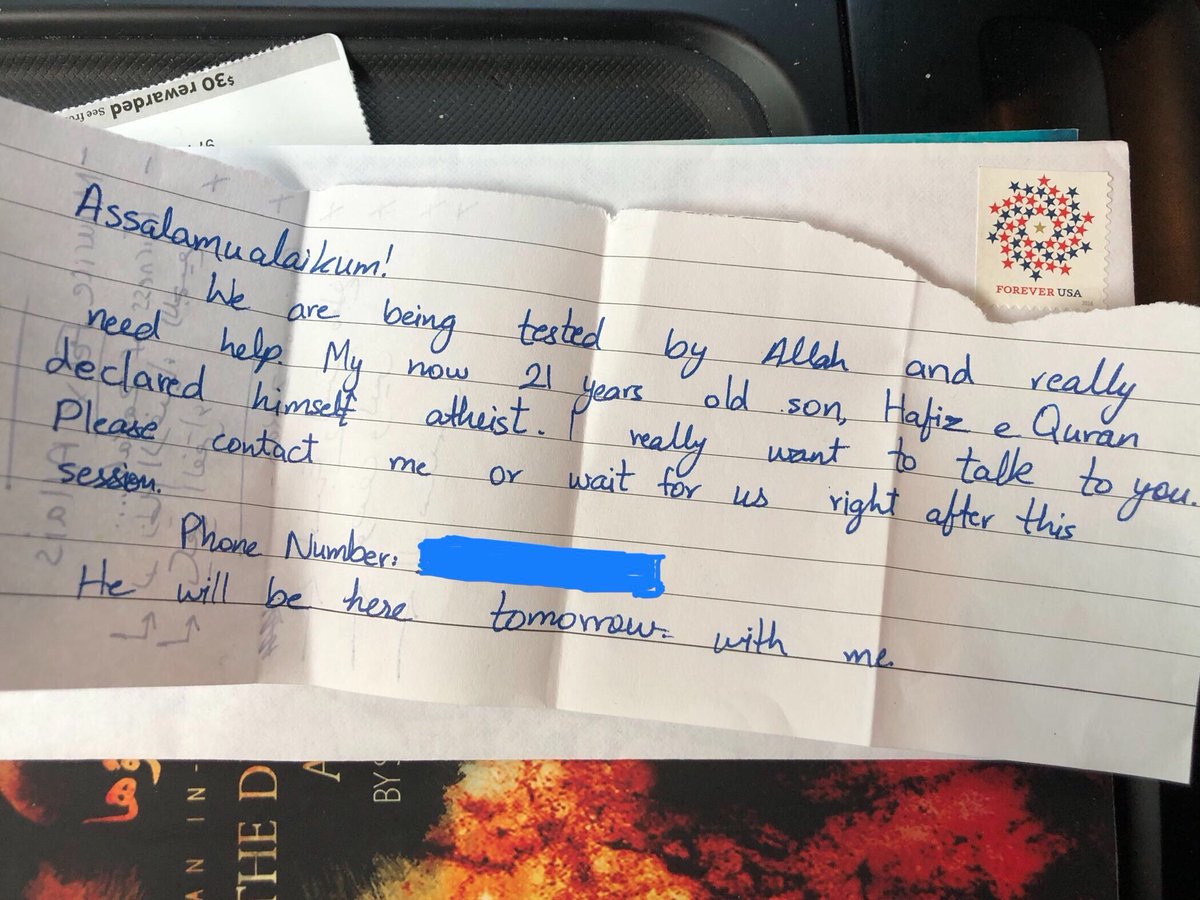 $30 rewarded See fro
FOREVER USA
2016
Assalamualaikum!
We are being tested by Allah and really
need help. My now 21 years old son, Hafiz e Quran
declared himself atheist. I really want to talk to you.
Please contact me or wait for us right after this
session.
Phone Number:
He will be here tomorrow with me.
AN IN-
THE D
A
BY S